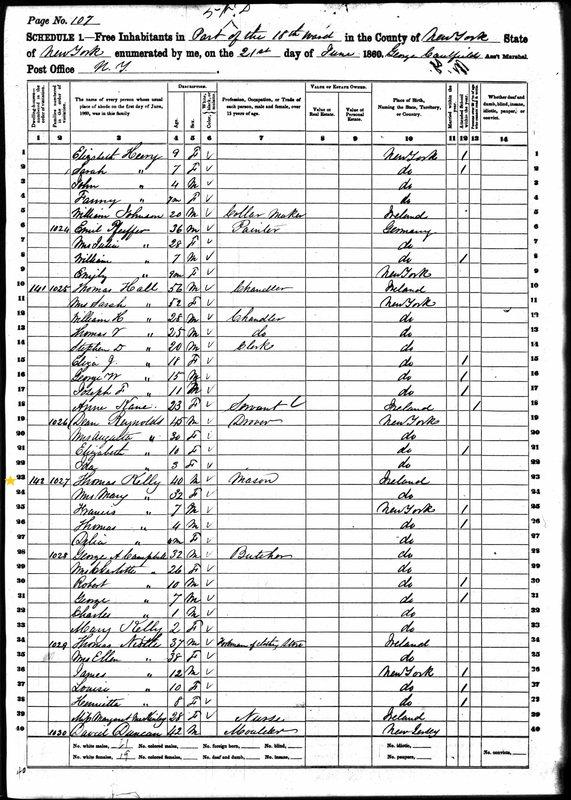 Page No. 107
SCHEDULE 1.—Free Inhabitants in Part of the 18th Ward in the County of New York State
of New York enumerated by me, on the 21st day of June 1860. George Caulfield Ass't Marshal.
Post Office N. Y.
Dwelling-houses—numbered in the order of visitation.
Families numbered in the order of visitation.
The name of every person whose usual place of abode on the first day of June, 1860, was in this family.
DESCRIPTION.
Age.
Sex.
Profession, Occupation, or Trade of each person, male and female, over 15 years of age.
VALUE OF ESTATE OWNED.
Value of Real Estate.
Value of Personal Estate.
Place of Birth, Naming the State, Territory, or Country.
Married within the year.
Attended School within the year.
Whether deaf and dumb, blind, insane, idiotic, pauper, or convict.
1 2 3 4 5 6 7 8 9 10 11 12 13 14
1 Elizabeth Henry 9 F New York 1 1
2 Sarah " 7 F do 1 2
3 John " 4 M do 3
4 Fanny " F do 4
5 William Johnson 20 M Collar Maker Ireland 5
6 1024 Emil Pfeiffer 36 M Painter Germany 6
7 Mrs Julia " 28 F do 7
8 William " 7 M do 1 8
9 Emily " 9m F New York 9
10 141 1025 Thomas Hall 56 M Chandler Ireland 10
11 Mrs Sarah " 52 F New York 11
12 William H " 28 M Chandler do 12
13 Thomas V " 25 M do do 13
14 Stephen D " 20 M Clerk do 14
15 Eliza J. " 18 F do 1 15
16 George W " 15 M do 1 16
17 Joseph F " 11 M do 1 17
18 Anne Kane 23 F Servant Ireland 1 18
19 1026 Reynolds 45 M Drover New York 19
20 Mrs Augusta " 30 F do 20
21 Elizabeth " 10 F do 1 21
22 Ida " 3 F do 22
23 142 1027 Thomas Kelly 40 M Mason Ireland 23
24 Mrs Mary " 32 F do 24
25 Francis " 7 M New York 1 25
26 Thomas " 4 M do 1 26
27 Delia " F do 27
28 1028 George A Campbell 32 M Butcher do 28
29 Mrs Charlotte " 26 F do 29
30 Robert " 10 M do 1 30
31 George " 7 M do 1 31
32 Charles " 1 M do 32
33 Mary Kelly 2 F do 33
34 1029 Thomas 37 M Ireland 34
35 Mrs Ellen " 38 F do 35
36 James " 12 M New York 1 36
37 Louisa " 10 F do 1 37
38 Henrietta " 8 F do 1 38
39 Miss Margaret 28 F Nurse Ireland 39
40 1030 David Duncan 42 M Moulder New Jersey 40
No. white males, No. colored males, No. foreign born, No. blind, No. idiotic, No. convicts,
No. white females, 19 No. colored females, No. deaf and dumb, No. insane, No. paupers,